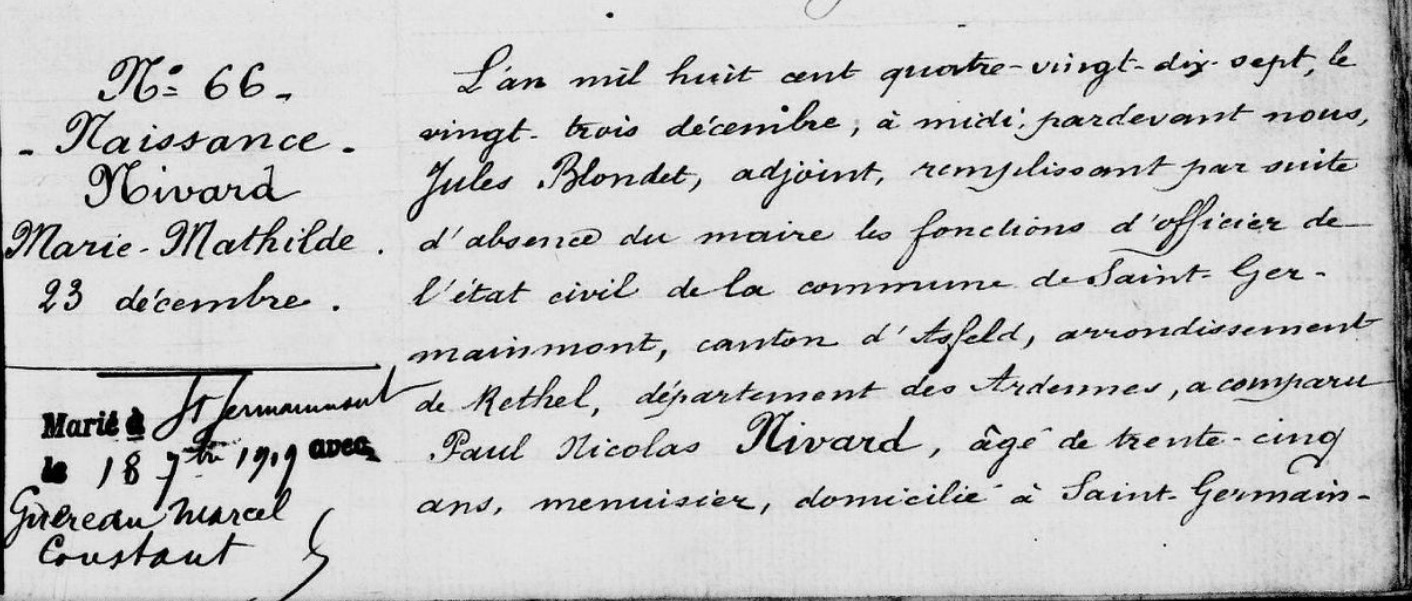 N° 66.
- Naissance -
Nivard
Marie-Mathilde.
23 décembre.
Marié à St Germainmont
le 18 7bre 1919 avec
Marcel
Constant
L'an mil huit cent quatre-vingt-dix-sept, le
vingt-trois décembre, à midi, pardevant nous,
Jules Blondet, adjoint, remplissant par suite
d'absence du maire les fonctions d'officier de
l'état civil de la commune de Saint-Ger-
mainmont, canton d'Asfeld, arrondissement
de Rethel, département des Ardennes, a comparu
Paul Nicolas Nivard, âgé de trente-cinq
ans, menuisier, domicilié à Saint-Germain-